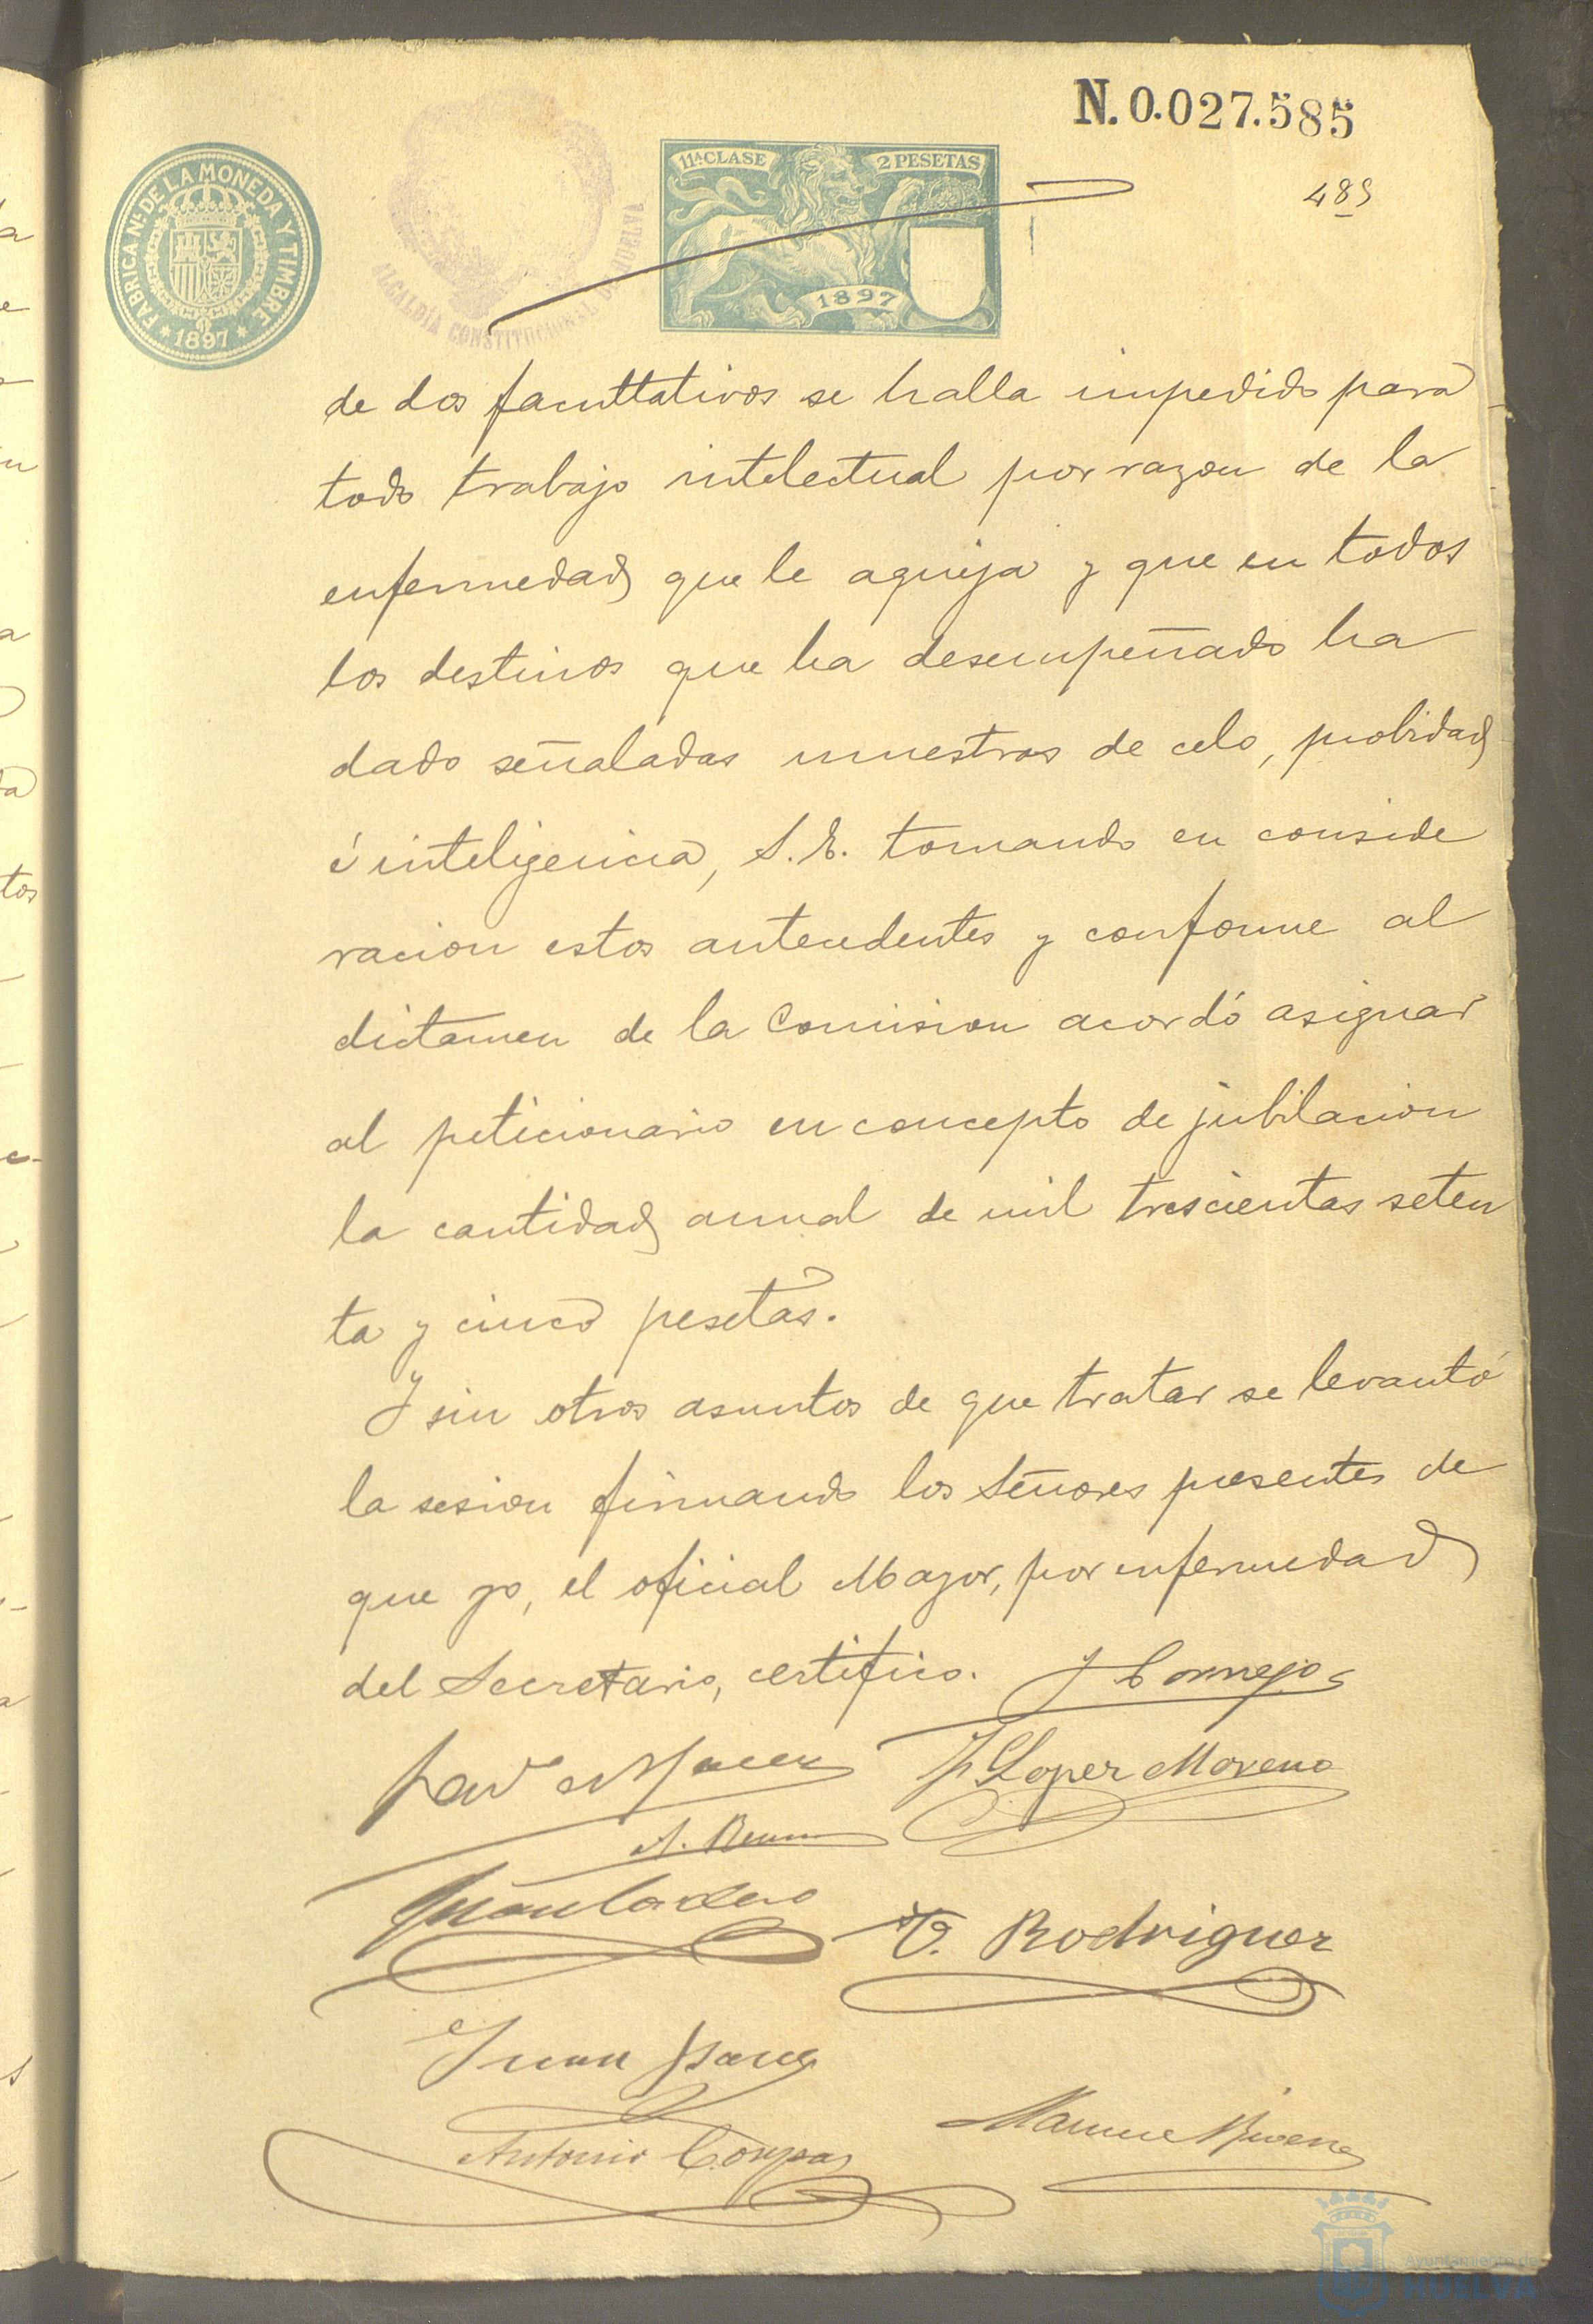 N. 0.027.585
489
FABRICA NL. DE LA MONEDA Y TIMBRE
* 1897 *
ALCALDÍA CONSTITUCIONAL DE HUELVA
11ª CLASE
2 PESETAS
1897
de dos facultativos se halla impedido para
todo trabajo intelectual por razon de la
enfermedad que le aqueja y que en todos
los destinos que ha desempeñado ha
dado señaladas muestras de celo, probidad
é inteligencia, S. E. tomando en conside
racion estos antecedentes y conforme al
dictamen de la Comision acordó asignar
al peticionario en concepto de jubilacion
la cantidad anual de mil trescientas seten
ta y cinco pesetas.
Y sin otros asuntos de que tratar se levantó
la sesion firmando los Señores presentes de
que yo, el oficial Mayor, por enfermedad
del Secretario, certifico. J Cornejo
J. Lopez Moreno
A.
V. Rodriguez
Juan
Antonio
Manuel
Ayuntamiento de
HUELVA